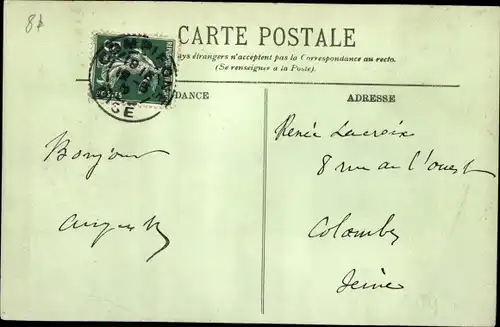 8
CARTE POSTALE
pays étrangers n'acceptent pas la Correspondance au recto.
(Se renseigner à la Poste).
DANCE
ADRESSE
Bonjour
Renée Lacroix
8 rue de l'ouest
Colombes
Seine